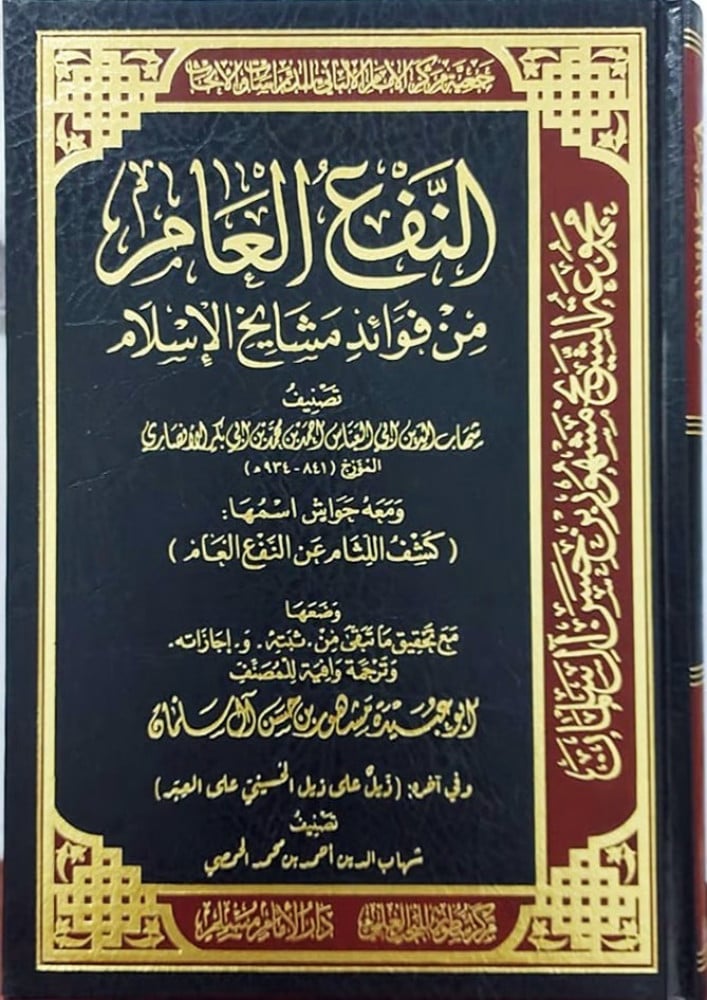 جمعية مركز الإمام الألباني للدراسات والأبحاث
النَّفْعُ العَام
مِنْ فَوَائِدِ مَشَايِخِ الإِسْلَام
تَصْنِيفُ
شهاب الدين أبي العباس أحمد بن محمد بن أبي بكر الأنصاري
المؤرخ (٨٤١ - ٩٣٤ هـ)
وَمَعَهُ حَوَاشٍ اسْمُهَا:
(كَشْفُ اللِّثَام عَن النَّفْع العَام)
وَضَعَهَا
مَعَ تَحْقِيق مَا تَبَقَّى مِنْ «ثَبَتِهِ» و«إِجَازَاتِه»
وَتَرْجَمَة وَافِيَة لِلْمُصَنِّفِ
أبو عبيدة مشهور بن حسن آل سلمان
وفي آخره: (ذَيلٌ على ذيل الحسيني على العبر)
تَصْنِيفُ
شهاب الدين أحمد بن محمد الحمصي
دار الإمام مسلم
مجموعة الشيخ مشهور بن حسن آل سلمان